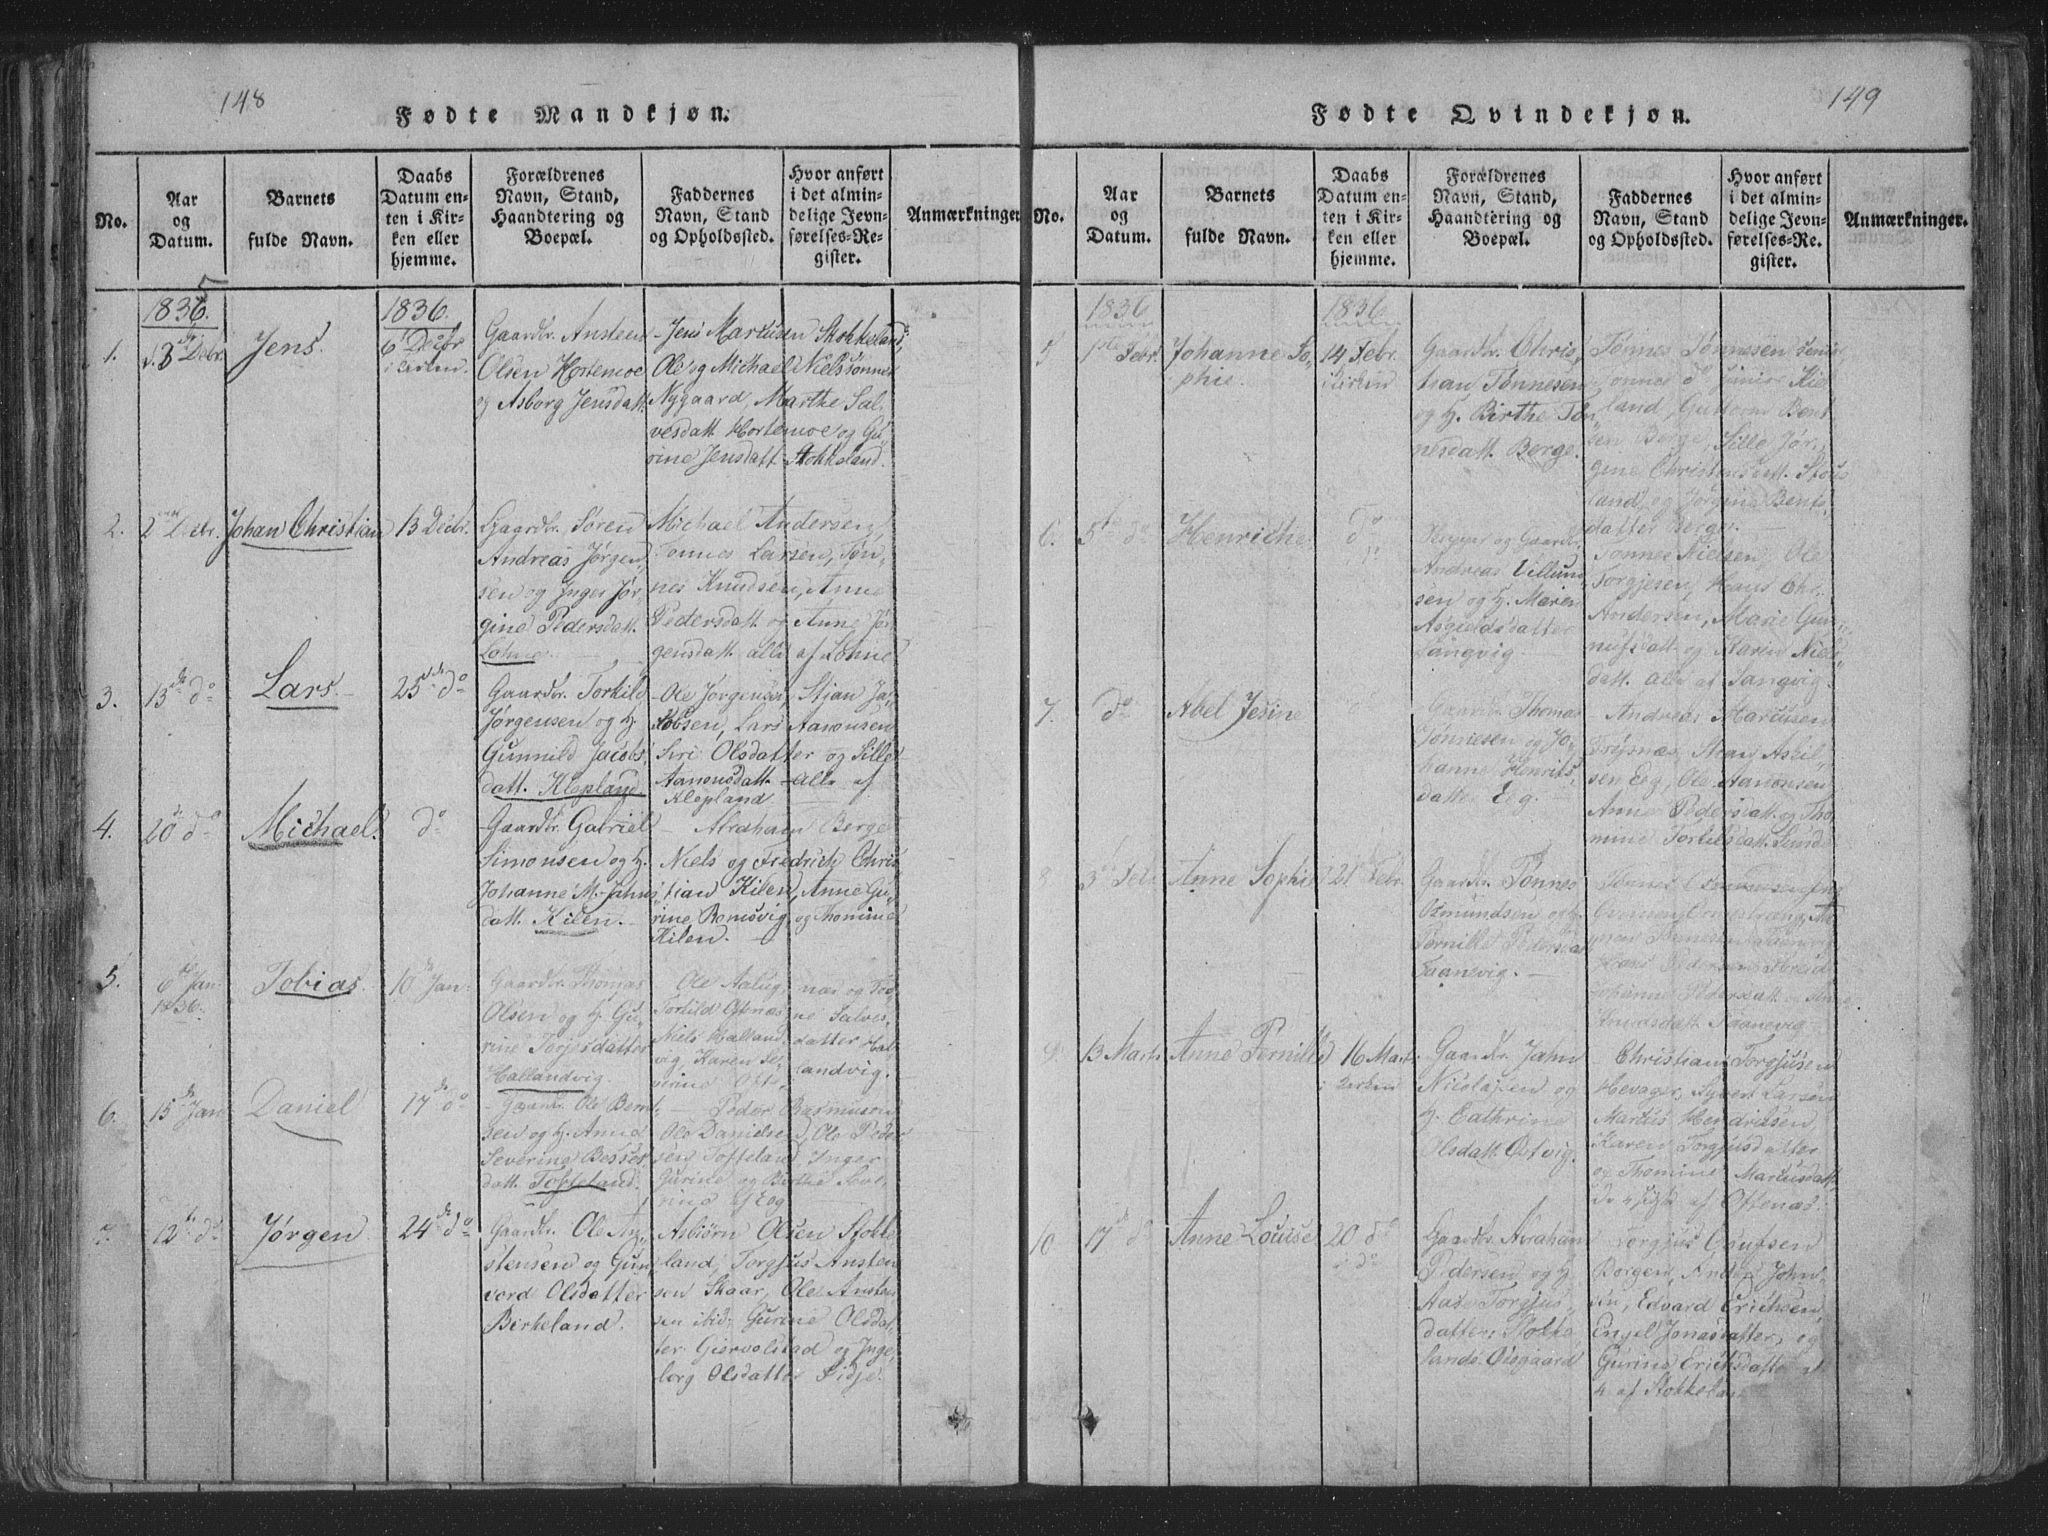 148
Fødte Mandkjøn.
No.
Aar
og
Datum.
Barnets
fulde Navn.
Daabs
Datum en-
ten i Kir-
ken eller
hjemme.
Forældrenes
Navn, Stand,
Haandtering og
Boepæl.
Faddernes
Navn, Stand
og Opholdssted.
Hvor anført
i det almin-
delige Jevn-
førelses-Re-
gister.
Anmærkninger.
1836.
1.
Debr.
Jens.
1836.
6 Decbr
i Kirken.
Gaardbr. Ansteen
Olsen Hortemoe
og Asborg Jensdatt.
Jens Marcusen Stokkeland,
Ole og Michael Nielssønner
Nygaard, Marthe Sal-
vesdatt. Hortemoe og Gu-
rine Jensdatt. Stokkeland.
2.
2 Debr.
Johan Christian
13 Decbr.
Gaardbr. Søren
Andreas Jørgen-
sen og Inger Jør-
gine Pedersdatt.
Lohne.
Michael Andersen,
Tønnes Larsen, Tøn-
nes Knudsen, Anne
Pedersdatt. og Anne Jør-
gensdatt. alle af Lohne
3.
13 do
Lars.
25 do
Gaardbr. Torkild
Jørgensen og H.
Gunnild Jacobs-
datt. Klepland
Ole Jørgensen, Stian Ja-
kobsen, Lars Aanonsen
Siri Olsdatter og Sille
Aanonsdatt. - alle af
Klepland
4.
20 do
Michael.
do
Gaardbr. Gabriel
Simonsen og H.
Johanne M. Jahns-
datt. Kilen.
Abraham Berge
Niels og Fredrich Chris-
tian Kilen, Anne Gu-
rine Romsvig, og Thomine
Kilen.
5.
6 Jan
1836.
Tobias.
10 Jan:
Gaardbr. Thomas
Olsen og H. Gu-
rine Torjesdatter
Hallandvig.
Ole
Torkild Oftenæs
Niels Halland-
vig Karen Se-
verine Ofte-
næs og Tor-
ne Salves-
datter Hal-
landvig.
6.
15 Jan
Daniel
17 do
Gaardbr. Ole Bernt-
sen og H. Anne
Severine Besses-
datt. Tofteland.
Peder Rasmusen
Ole Danielsen, Ole Peder-
sen Tofteland, Inger
Gurine og Birthe Seve-
rine
7.
12 do
Jørgen
24 do
Gaardbr. Ole Ny-
stensen og Gun-
vord Olsdatter
Birkeland.
Asbiørn Olsen Stokke-
land, Torgjus Ansten-
sen Skaar, Ole Ansten-
sen ibid: Gurine Olsdat-
ter Giervolstad og Inge-
borg Olsdatter Tidje.
149
Fødte Qvindekjøn.
No.
Aar
og
Datum.
Barnets
fulde Navn.
Daabs
Datum en-
ten i Kir-
ken eller
hjemme.
Forældrenes
Navn, Stand,
Haandtering og
Boepæl.
Faddernes
Navn, Stand
og Opholdssted.
Hvor anført
i det almin-
delige Jevn-
førelses-Re-
gister.
Anmærkninger.
1836
5
1ste Febr.
Johanne So-
phie.
1836
14 Febr.
i Kirken
Gaardbr. Chris-
tian Tønnesen
og H. Birthe Tøn-
nesdatt. Berge.
Tønnes Tønnesen senior
Tønnes do junior Kie-
land, Guttorm Bent-
sen Berge, Sille Jør-
gine Christensdatt. Stous-
land, og Jørgine Bents-
datter Berge.
6.
5 do
Henriche
do
og Gaardbr.
Andreas Villum-
sen og H. Maren
Asgieldsdatter
Langvig.
Tønnes Nielsen, Ole
Torgjesen, Hans Chr.
Andersen, Marie Gun-
nufsdatt. og Karin Niels-
datt. alle af Langvig.
7.
do
Abel Jesine
Gaardbr. Thomas
Tønnesen og Jo-
hanne Henriks-
datter Eeg.
Andreas Marcusen
Frøysnæs, Stian Askil-
sen Eeg, Ole Aanonsen
Anne Pedersdatt. og Tho-
mine Torkilsdatt. Lunde
8
3 Febr
Anne Sophie
21 Febr.
Gaardbr. Tønnes
Osmundsen og H.
Pernille Pedersdatt.
Faanevig.
Tønnes
Hans Pedersen
Johanne Pedersdatt. og Anne
Knudsdatt. Faanevig
9
13 Marts
Anne Pernille
16 Mart.
i Kirken
Gaardbr. Jahn
Nicolaisen og
H. Cathrine
Olsdatt. Østvig.
Christian Torgjusen
Hevager, Syvert Larsen
Marcus Hendriksen,
Karen Torgjusdatter
og Thomine Marcusdatt.
De 4 sidste af Oftenæs.
10
17 do
Anne Louise
20 do
i do
Gaardbr. Abraham
Pedersen og H.
Aase Torgjus-
datter, Stokke-
lands Ødegaard
Torgjus
Borgen, Anders John-
sen, Edvard Erichsen,
Engel Jonasdatter, og
Gurine Erichsdatter alle
4 af Stokkeland